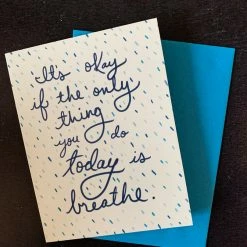 It's okay
if the only
thing
you do
today is
breathe